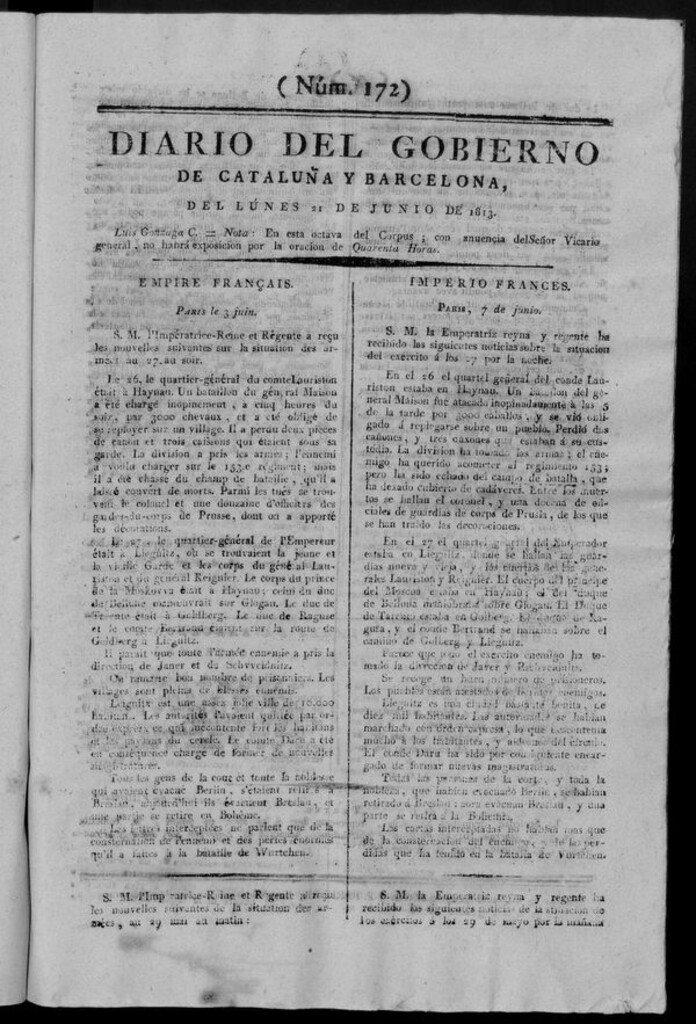 ( Núm. 172)
DIARIO DEL GOBIERNO
DE CATALUÑA Y BARCELONA,
DEL LÚNES 21 DE JUNIO DE 1813.
Luis Gonzaga C. = Nota: En esta octava del Corpus; con anuencia delSeñor Vicario
general, no habrá exposicion por la oracion de Quarenta Horas.
EMPIRE FRANÇAIS.
Paris le 3 juin.
S. M. l'Impératrice-Reine et Régente a reçu
les nouvelles suivantes sur la situation des ar-
mées au 27 au soir.
Le 26, le quartier-général du comte Lauriston
était à Haynau. Un bataillon du général Maison
a été chargé inopinément, a cinq heures du
soir, par 3000 chevaux, et a été obligé de
se reployer sur un village. Il a perdu deux pièces
de canon et trois caissons qui étaient sous sa
garde. La division a pris les armes; l'ennemi
a voulu charger sur le 153.e régiment; mais
il a été chassé du champ de bataille, qu'il a
laissé couvert de morts. Parmi les tués se trou-
vent le colonel et une douzaine d'officiers des
gardes-du-corps de Prusse, dont on a apporté
les décorations.
Le 27, le quartier-général de l'Empereur
était à Liegnitz, où se trouvaient la jeune et
la vieille Garde et les corps du général Lau-
riston et du général Reignier. Le corps du prince
de la Moskowa était à Haynau; celui du duc
de Bellune manœuvrait sur Glogau. Le duc de
Tarente était à Goldberg. Le duc de Raguse
et le comte Bertrand étaient sur la route de
Goldberg à Liegnitz.
Il paraît que toute l'armée ennemie a pris la
direction de Janer et de Schvveidnitz.
On ramasse bon nombre de prisonniers. Les
villages sont pleins de blessés ennemis.
Leignitz est une assez jolie ville de 10,000
habitans. Les autorités l'avaient quittée par or-
dre exprès, ce qui mécontente fort les habitans
et les paysans du cercle. Le comte Daru a été
en conséquence chargé de former de nouvelles
magistratures.
Tous les gens de la cour et toute la noblesse
qui avaient évacué Berlin, s'étaient retirés à
Breslau, aujourd'hui ils évacuent Breslau, et
une partie se retire en Bohême.
Les lettres interceptées ne parlent que de la
consternation de l'ennemi et des pertes énormes
qu'il a faites à la bataille de Wurtchen.
S. M. l'Impératrice-Reine et Régente a reçu
les nouvelles suivantes de la situation des ar-
mées, au 29 mai au matin:
IMPERIO FRANCES.
Paris, 7 de junio.
S. M. la Emperatriz reyna y regente ha
recibido las siguientes noticias sobre la situacion
del exército á los 27 por la noche.
En el 26 el quartel general del conde Lau-
riston estaba en Haynau. Un batallon del
general Maison fue atacado inopinadamente á las 5
de la tarde por 3000 caballos, y se vió obli-
gado á replegarse sobre un pueblo. Perdió dos
cañones, y tres caxones que estaban á su cus-
tódia. La division ha tomado las armas; el ene-
migo ha querido acometer al regimiento 153;
pero ha sido echado del campo de batalla, que
ha dexado cubierto de cadáveres. Entre los muer-
tos se hallan el coronel, y una docena de ofi-
ciales de guardias de corps de Prusia, de los que
se han traido las decoraciones.
En el 27 el quartel general del Emperador
estaba en Liegnitz, donde se hallan las guar-
dias nueva y vieja, y los cuerpos de los ge-
nerales Lauriston y Reignier. El cuerpo del príncipe
del Moscua estaba en Haynau; el del duque
de Bellunia maniobraba sobre Glogau. El Duque
de Tarento estaba en Golberg. El duque de Ra-
gusa, y el conde Bertrand se hallaban sobre el
camino de Golberg y Liegnitz.
Parece que todo el exército enemigo ha to-
mado la direccion de Javer y
Se recoge un buen número de prisioneros.
Los pueblos están atestados de heridos enemigos.
Liegnitz es una ciudad bastante bonita, de
diez mil habitantes. Las autoridades se habian
marchado con órden expresa, lo que descontenta
mucho á los habitantes, y aldeanos del círculo.
El conde Daru ha sido por consiguiente encar-
gado de formar nuevas magistraturas.
Todas las personas de la corte, y toda la
nobleza, que habian evacuado Berlin, se habian
retirado á Breslau: aora evacuan Breslau, y una
parte se retira á la Bohemia.
Las cartas interceptadas no hablan mas que
de la consternacion del enemigo, y de las per-
didas que ha tenido en la batalla de Vurschen.
S. M. la Emperatriz reyna y regente ha
recibido las siguientes noticias de la situacion de
los exércitos á los 29 de mayo por la mañana